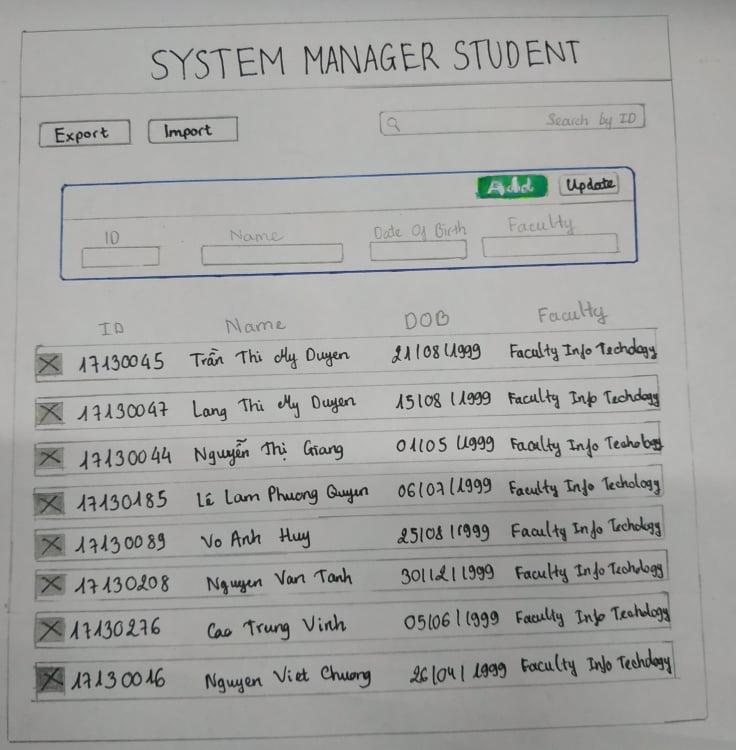 SYSTEM MANAGER STUDENT
Export Import Search by ID
Add Update
ID Name Date Of Birth Faculty
ID Name DOB Faculty
17130045 Trần Thi My Duyen 21/08/1999 Faculty Info Techology
17130047 Lang Thi My Duyen 15/08/1999 Faculty Info Techology
17130044 Nguyễn Thị Giang 01/05/1999 Faculty Info Techology
17130185 Lê Lam Phuong Quyen 06/07/1999 Faculty Info Techology
17130089 Vo Anh Huy 25/08/1999 Faculty Info Techology
17130208 Nguyen Van Tanh 30/12/1999 Faculty Info Techology
17130276 Cao Trung Vinh 05/06/1999 Faculty Info Techology
17130016 Nguyen Viet Chuong 26/04/1999 Faculty Info Techology